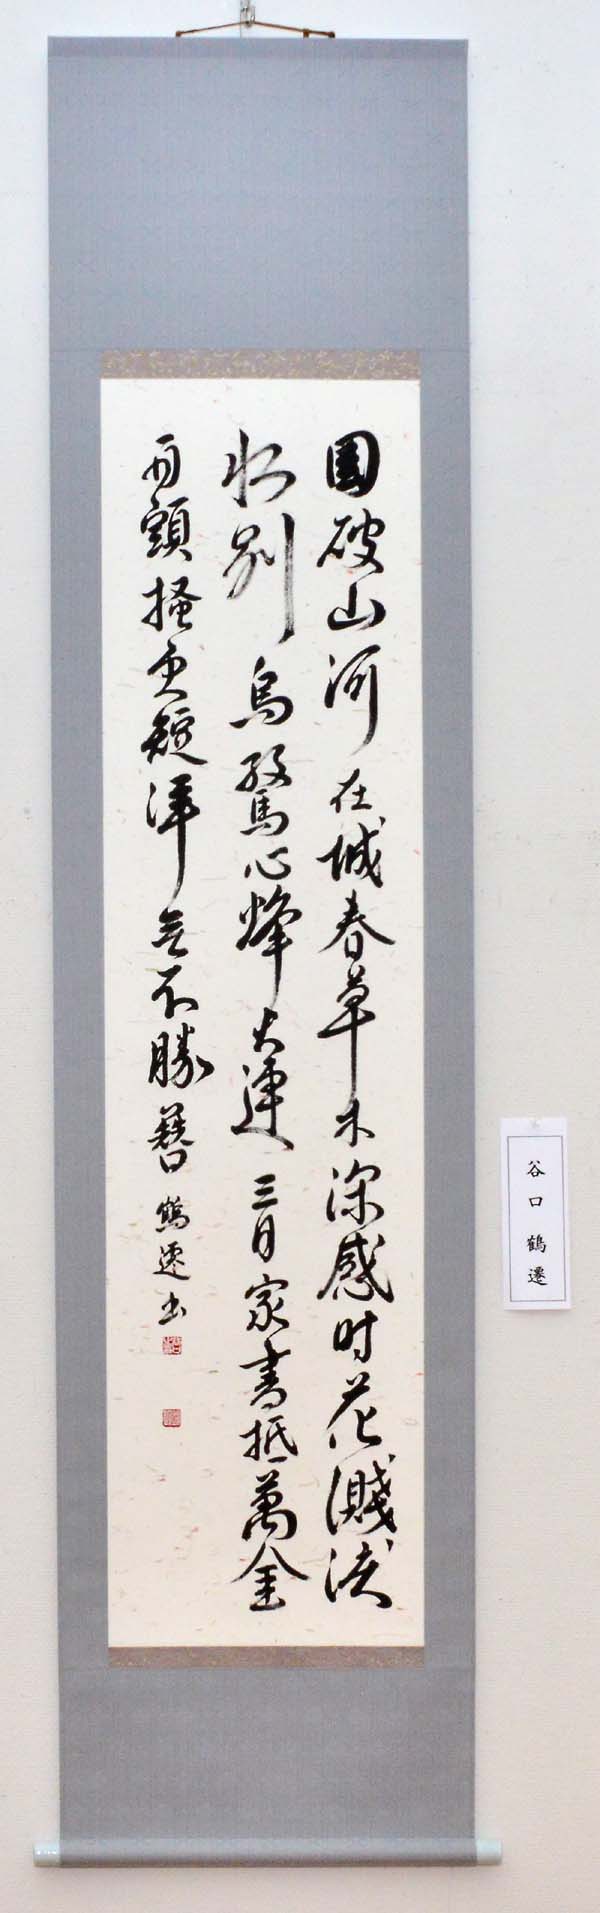 國破山河在城春草木深感時花濺淚
恨別鳥驚心烽火連三月家書抵萬金
白頭搔更短渾欲不勝簪 鶴遷書
谷口鶴遷